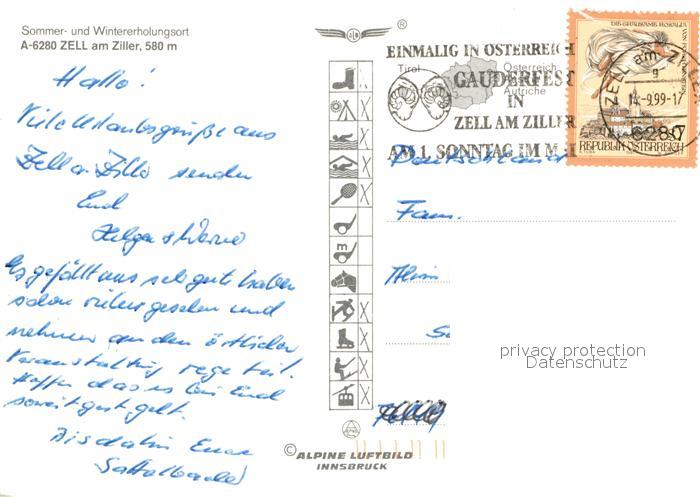 Sommer- und Wintererholungsort
A-6280 ZELL am Ziller, 580 m
Hallo!
Viele Urlaubsgrüße aus
Zell a. Ziller senden
Euch
Helga + Werner
Es gefällt uns sehr gut haben
schon vieles gesehen und
nehmen an den örtlichen
Veranstaltung rege teil.
Hoffen das es bei Euch
soweit gut geht.
Bis dahin Eure
ALB
®
EINMALIG IN ÖSTERREICH
Tirol
Österreich
Autriche
GAUDERFEST
IN
ZELL AM ZILLER
AM 1. SONNTAG IM MAI
DIE GRAUSAME ROSALIA
ZELL am ZILLER
g
14.-9.99-17
6280
REPUBLIK ÖSTERREICH
Deutschland
Fam.
privacy protection
Datenschutz
m
© ALPINE LUFTBILD
INNSBRUCK